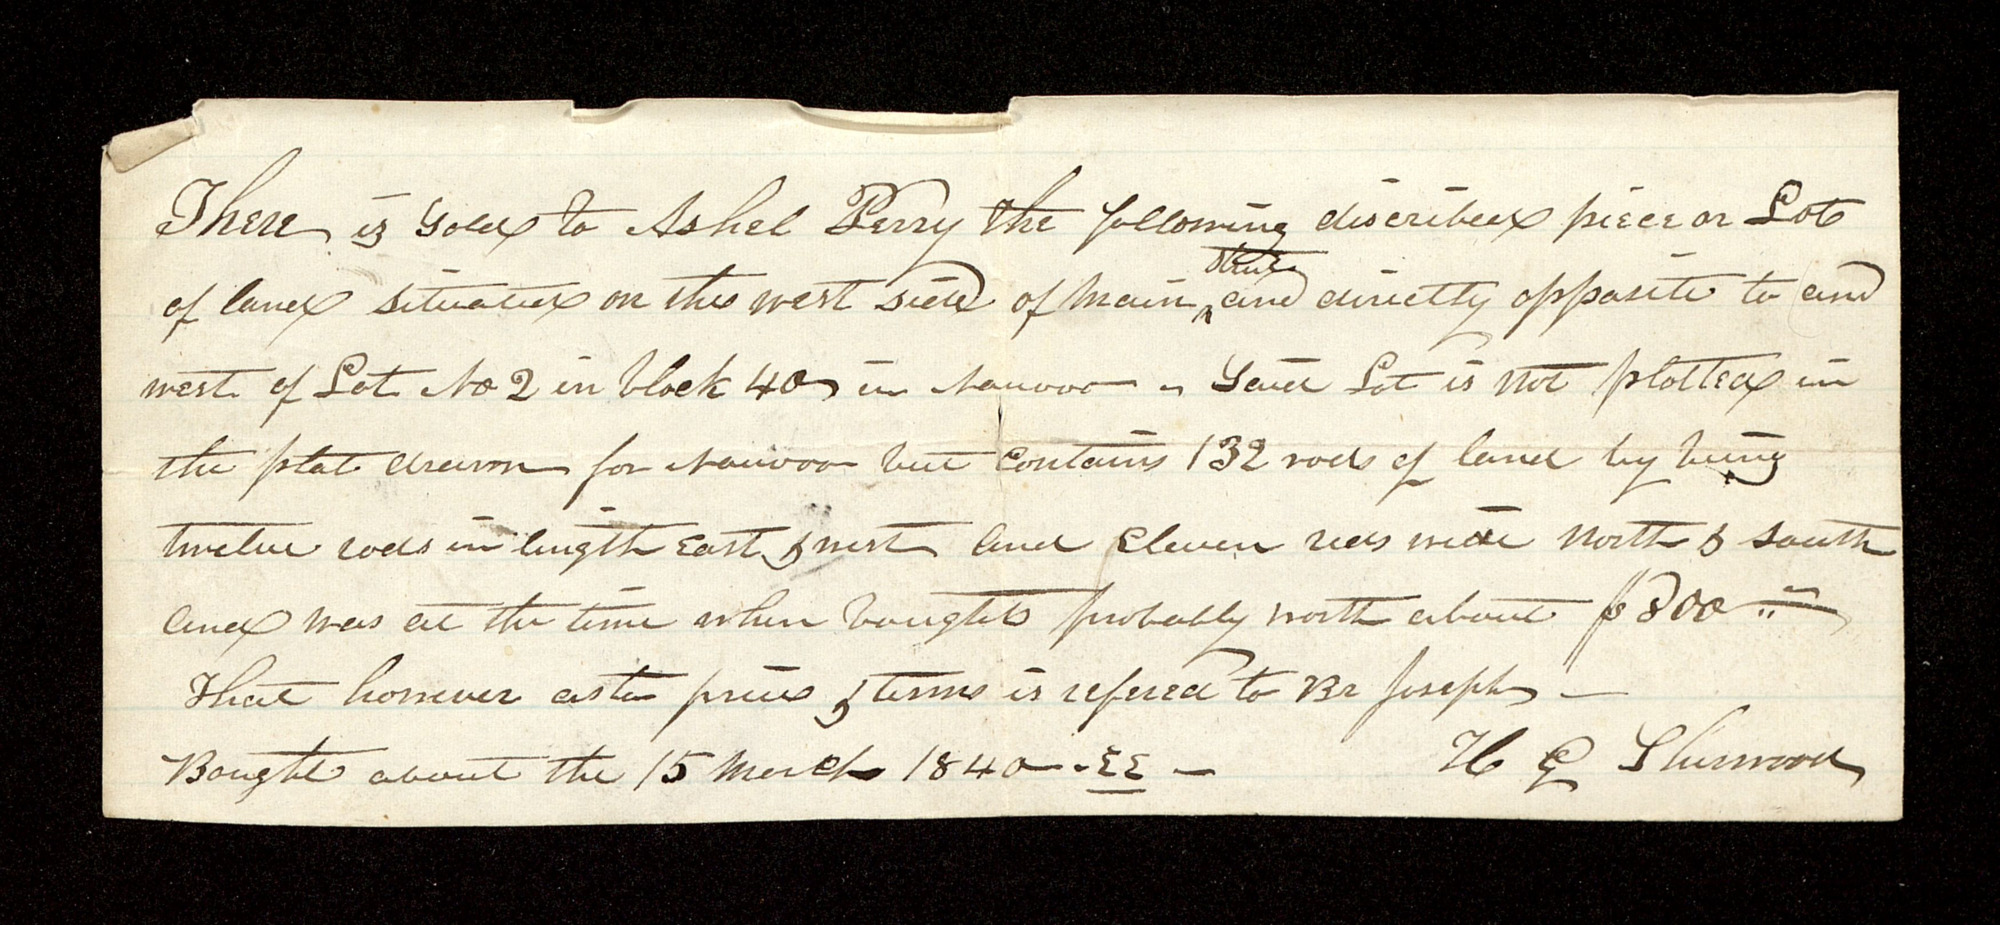 There is Sold to Ashel Perry the following discribed piece or Lot
of land situated on the west side of Main street and directly opposite to (and
west of Lot No 2 in block 40) in Nauvoo - Said Lot is not plotted in
the plat drawn for Nauvoo but contains 132 rods of land by being
twelve rods in length East & west and Eleven rods wide North & South
and was at the time when bought probably worth about $800
That however as to price & terms is refered to Br Joseph —
Bought about the 15 March 1840 -
H G Sherwood